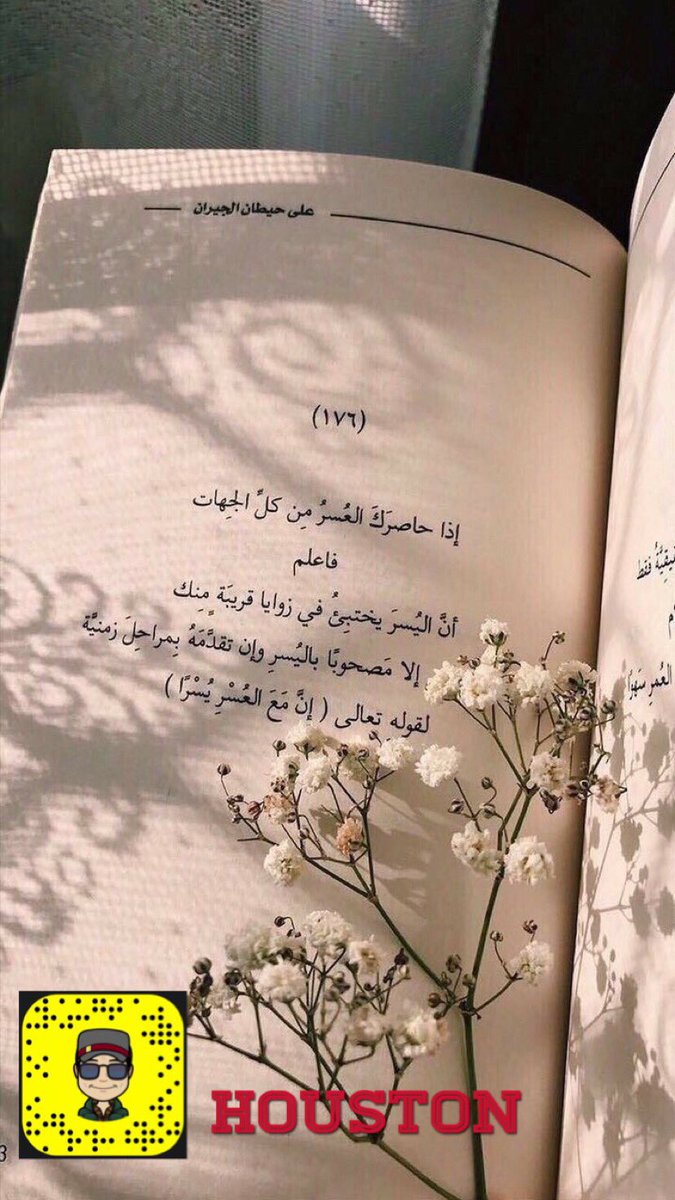 على حيطان الجيران
(١٧٦)
إذا حاصرَكَ العُسرُ مِن كلِّ الجِهات
فاعلم
أنَّ اليُسرَ يختبِئُ في زوايا قريبَة مِنِك
إلا مَصحوبًا باليُسرِ وإن تقدَّمَهُ بِمراحِلَ زمنيَّة
لقولِه تعالى ( إنَّ مَعَ العُسْرِ يُسْرًا )
فقط
العُمرِ سَهوًا
3
HOUSTON